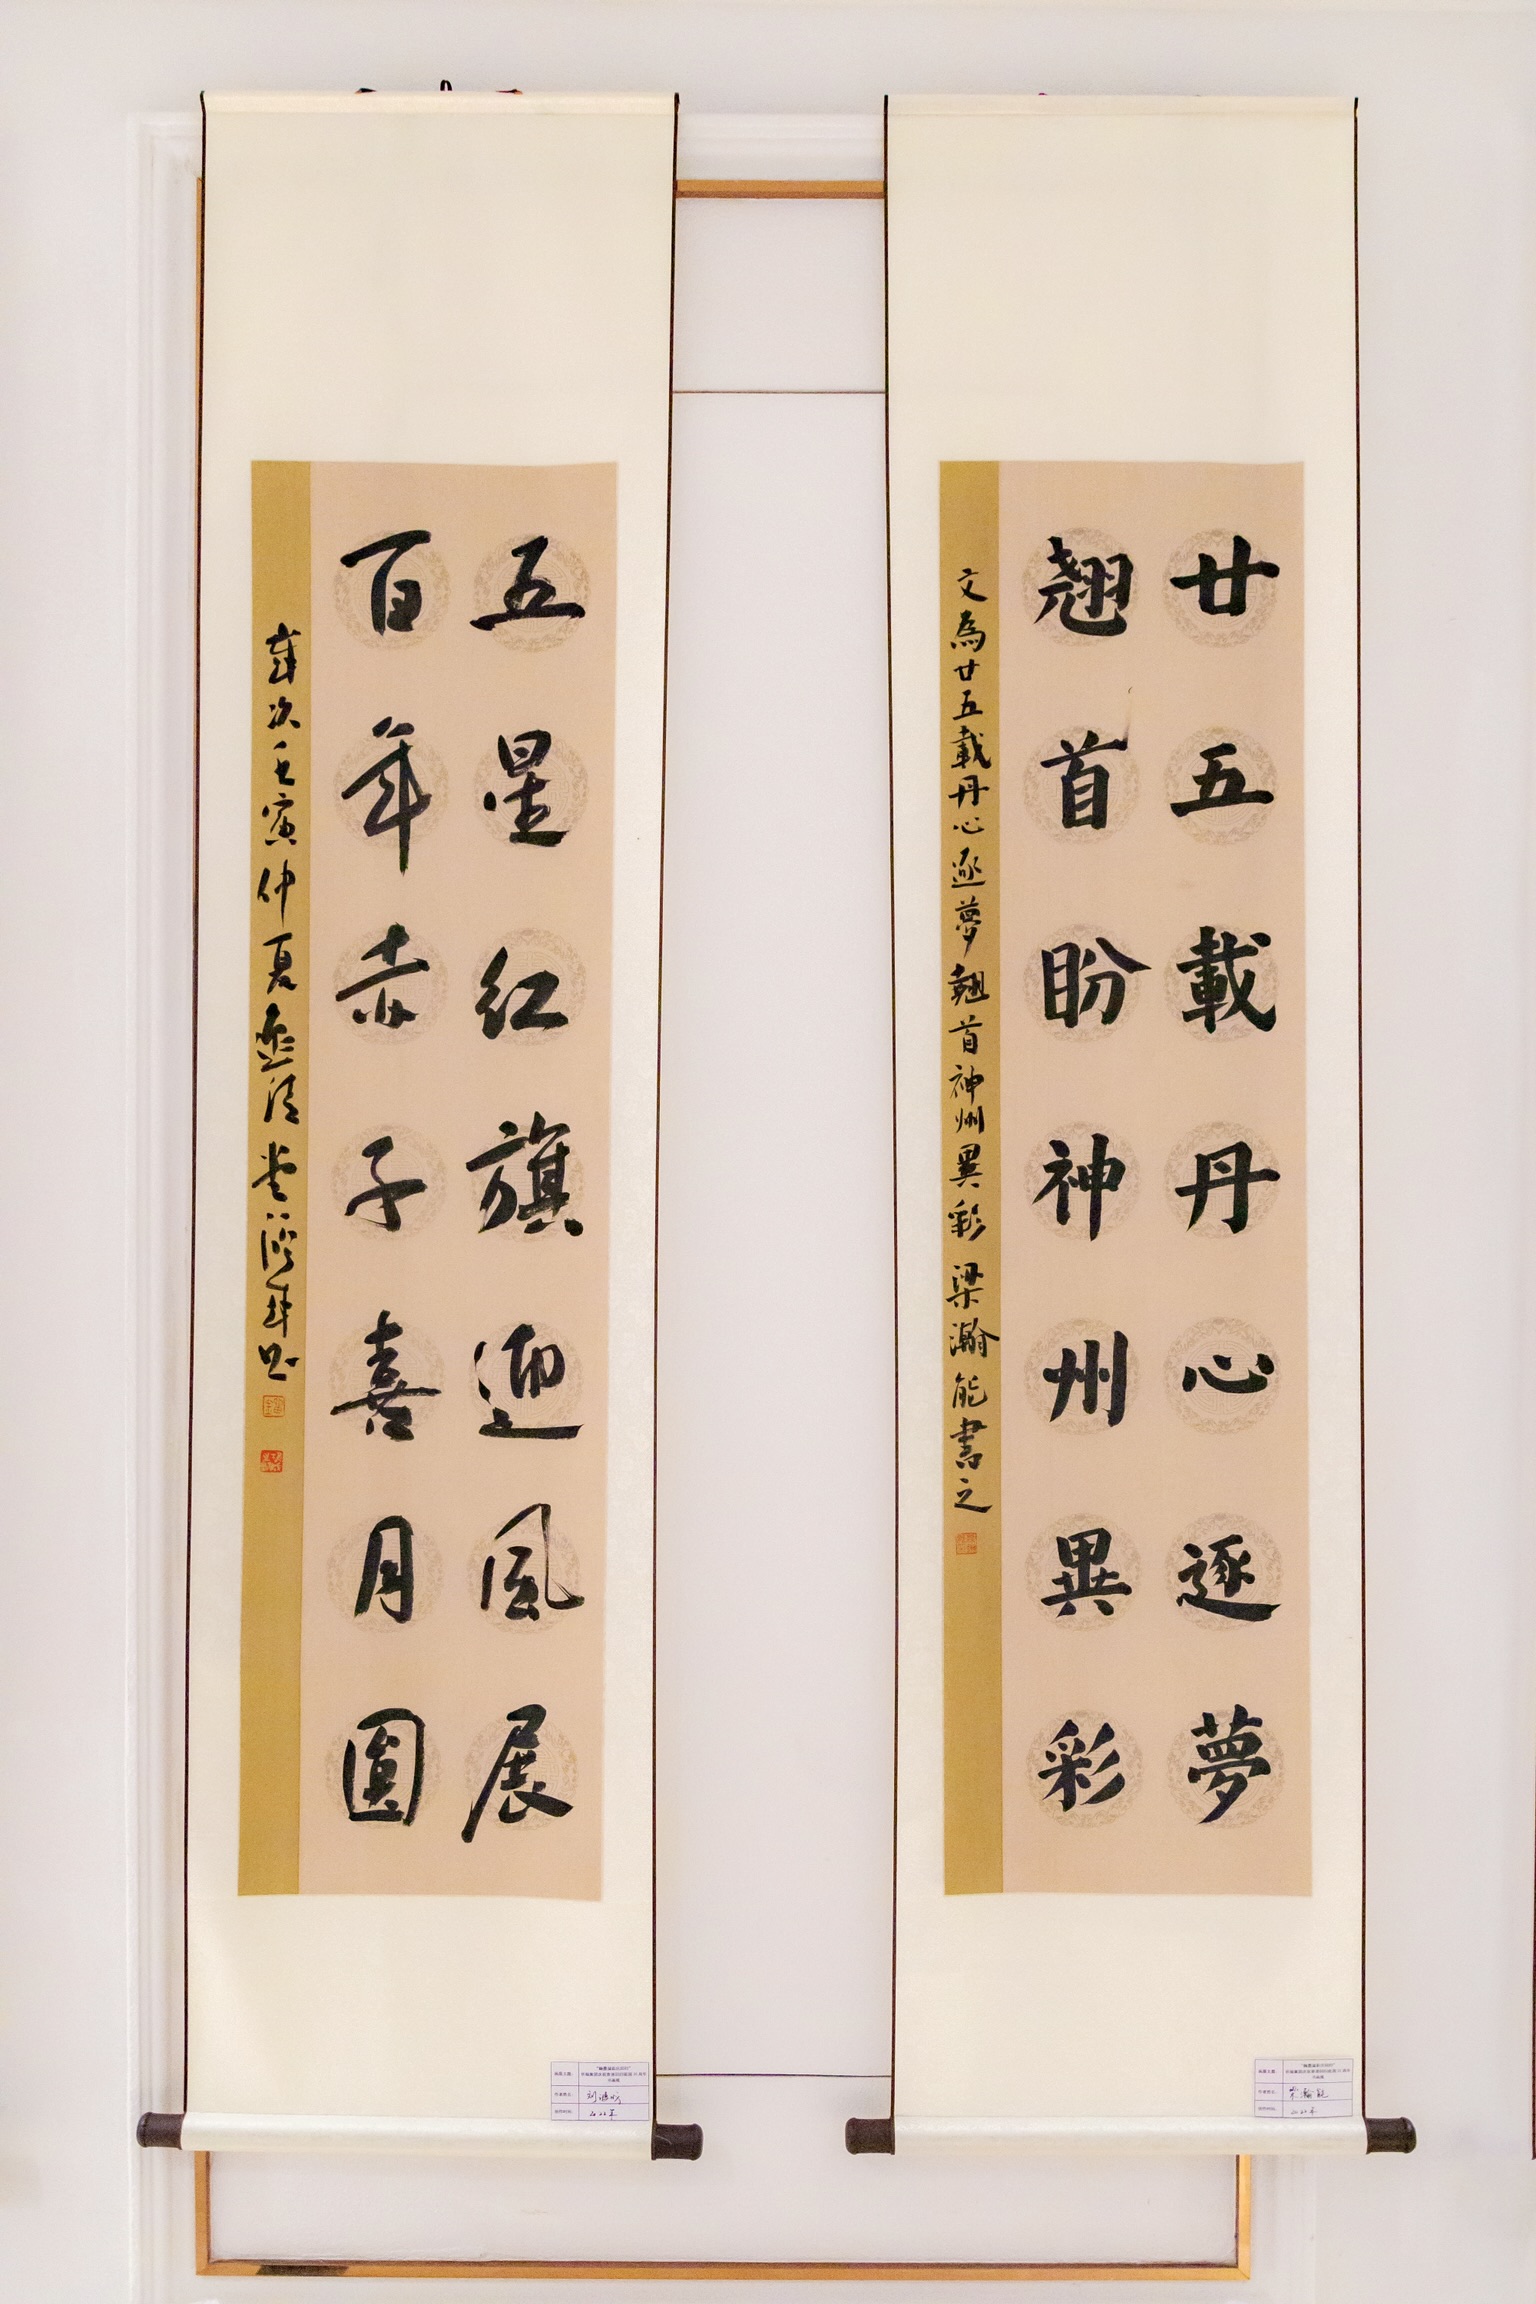 廿五載丹心逐夢
翹首盼神州異彩
文為廿五載丹心逐夢翹首神州異彩 梁瀚能書之
五星红旗迎風展
百年赤子喜月圓
歲次壬寅仲夏